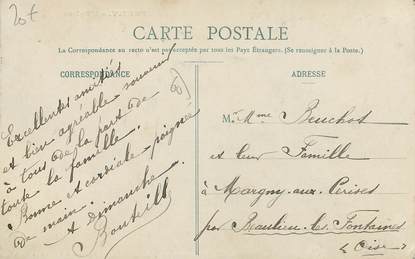 20 €
CARTE POSTALE
La Correspondance au recto n'est pas acceptée par tous les Pays Étrangers. (Se renseigner à la Poste.)
CORRESPONDANCE
ADRESSE
Excellentes amitiés
et bien agréable souvenir
à tous de la part de
toute la famille.
Bonne et cordiale poignée
de main.
A dimanche
M. Mme Beuchot
et leur Famille
à Margny-aux-Cerises
par Beaulieu-les-Fontaines
Oise